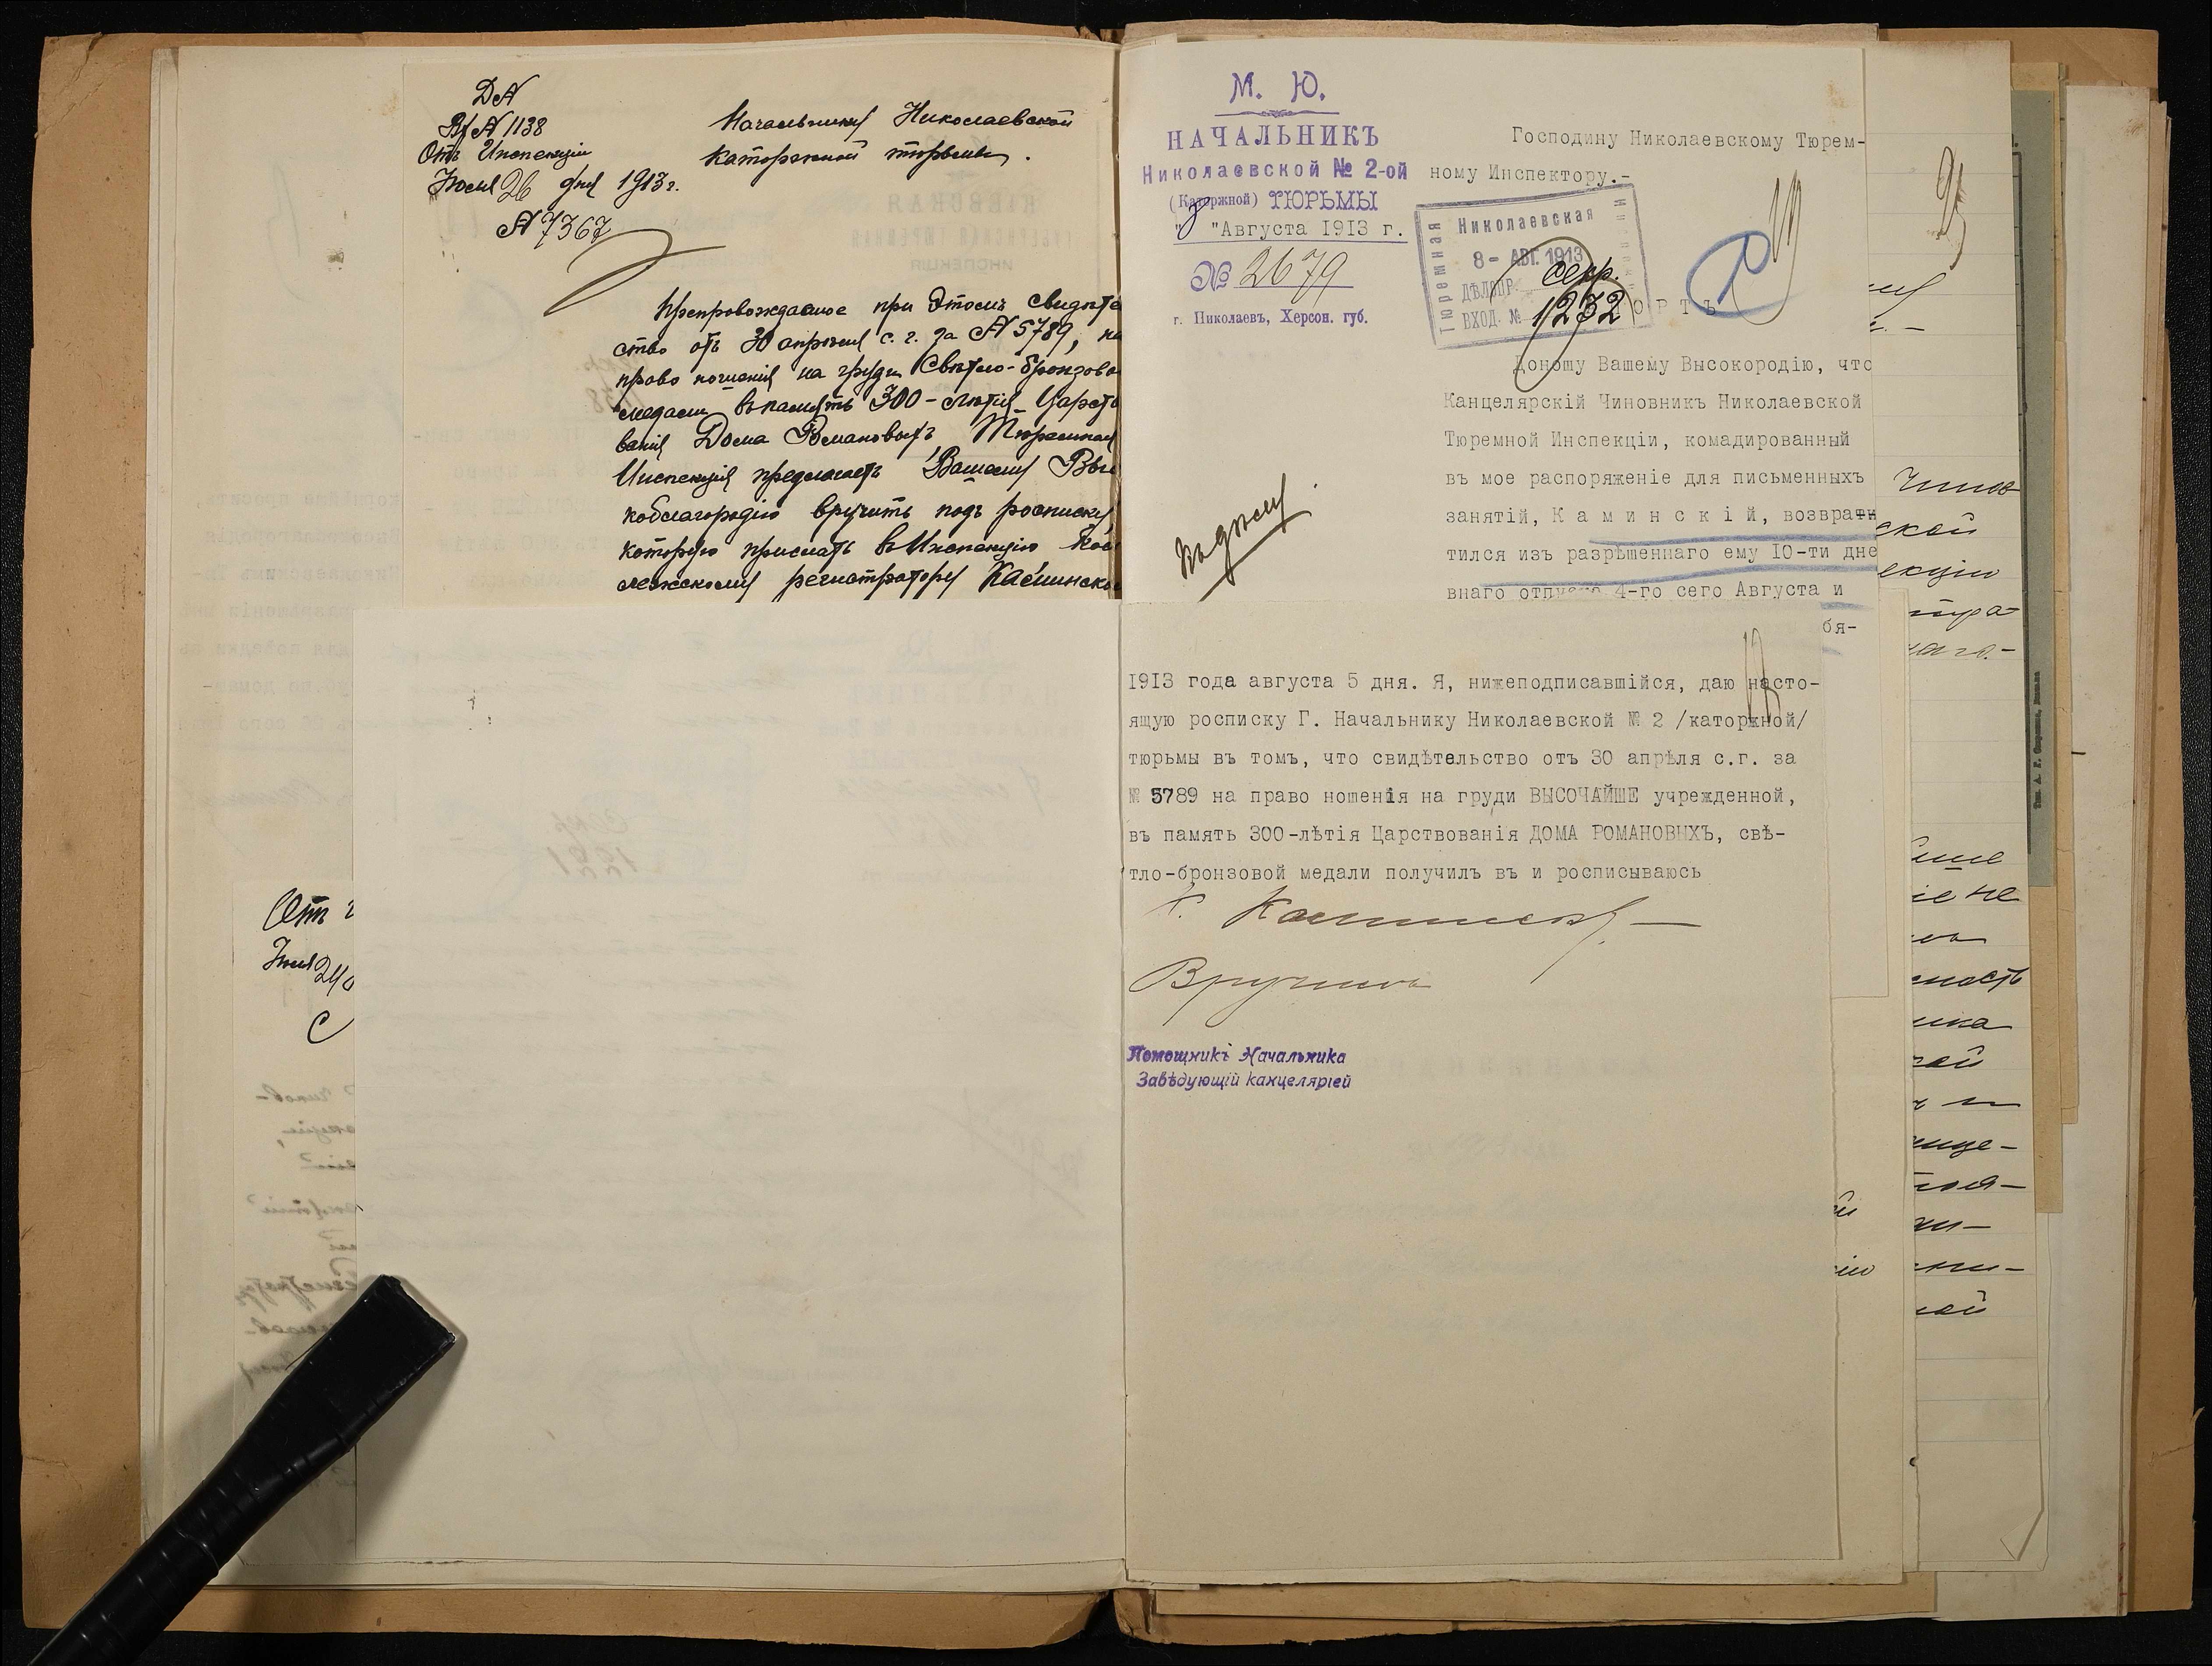 ДѦ
Вх № 1138
Отъ Инспекціи
Іюля 26 дня 1913 г.
№ 7367
Начальнику Николаевской
каторжной тюрьмы.
Препровождаемое при этомъ свидѣте
ство отъ 30 апрѣля с. г. за № 5789, на
право ношенія на груди свѣтло-бронзово
медали въ память 300-лѣтія Царств
ванія Дома Романовыхъ, Тюремная
Инспекція предлагаетъ Вашему Выс
коблагородію вручить подъ росписку
которую прислать въ Инспекцію Кол
лежскому регистратору Каминско
Отъ
Іюля 24
М. Ю.
НАЧАЛЬНИКЪ
Николаевской № 2-ой
(Каторжной) ТЮРЬМЫ
"Августа 1913 г.
№ 2679
г. Николаевъ, Херсон. губ.
Господину Николаевскому Тюрем-
ному Инспектору.-
Николаевская
Тюремная
8 - АВГ. 1913
ДѢЛОПР. Секр.
ВХОД. № 1232
ОРТЪ
Доношу Вашему Высокородію, что
Канцелярскій Чиновникъ Николаевской
Тюремной Инспекціи, комадированный
въ мое распоряженіе для письменныхъ
занятій, К а м и н с к і й, возврати
тился изъ разрѣшеннаго ему 10-ти дне
внаго отпуска 4-го сего Августа и
бя-
Къ дѣлу.
1913 года августа 5 дня. Я, нижеподписавшійся, даю насто-
ящую росписку Г. Начальнику Николаевской № 2 /каторжной/
тюрьмы въ томъ, что свидѣтельство отъ 30 апрѣля с.г. за
№ 5789 на право ношенія на груди ВЫСОЧАЙШЕ учрежденной,
въ память 300-лѣтія Царствованія ДОМА РОМАНОВЫХЪ, свѣ-
тло-бронзовой медали получилъ въ и росписываюсь
К. Каминскій
Вручилъ
Помощникъ Начальника
Завѣдующій канцеляріей